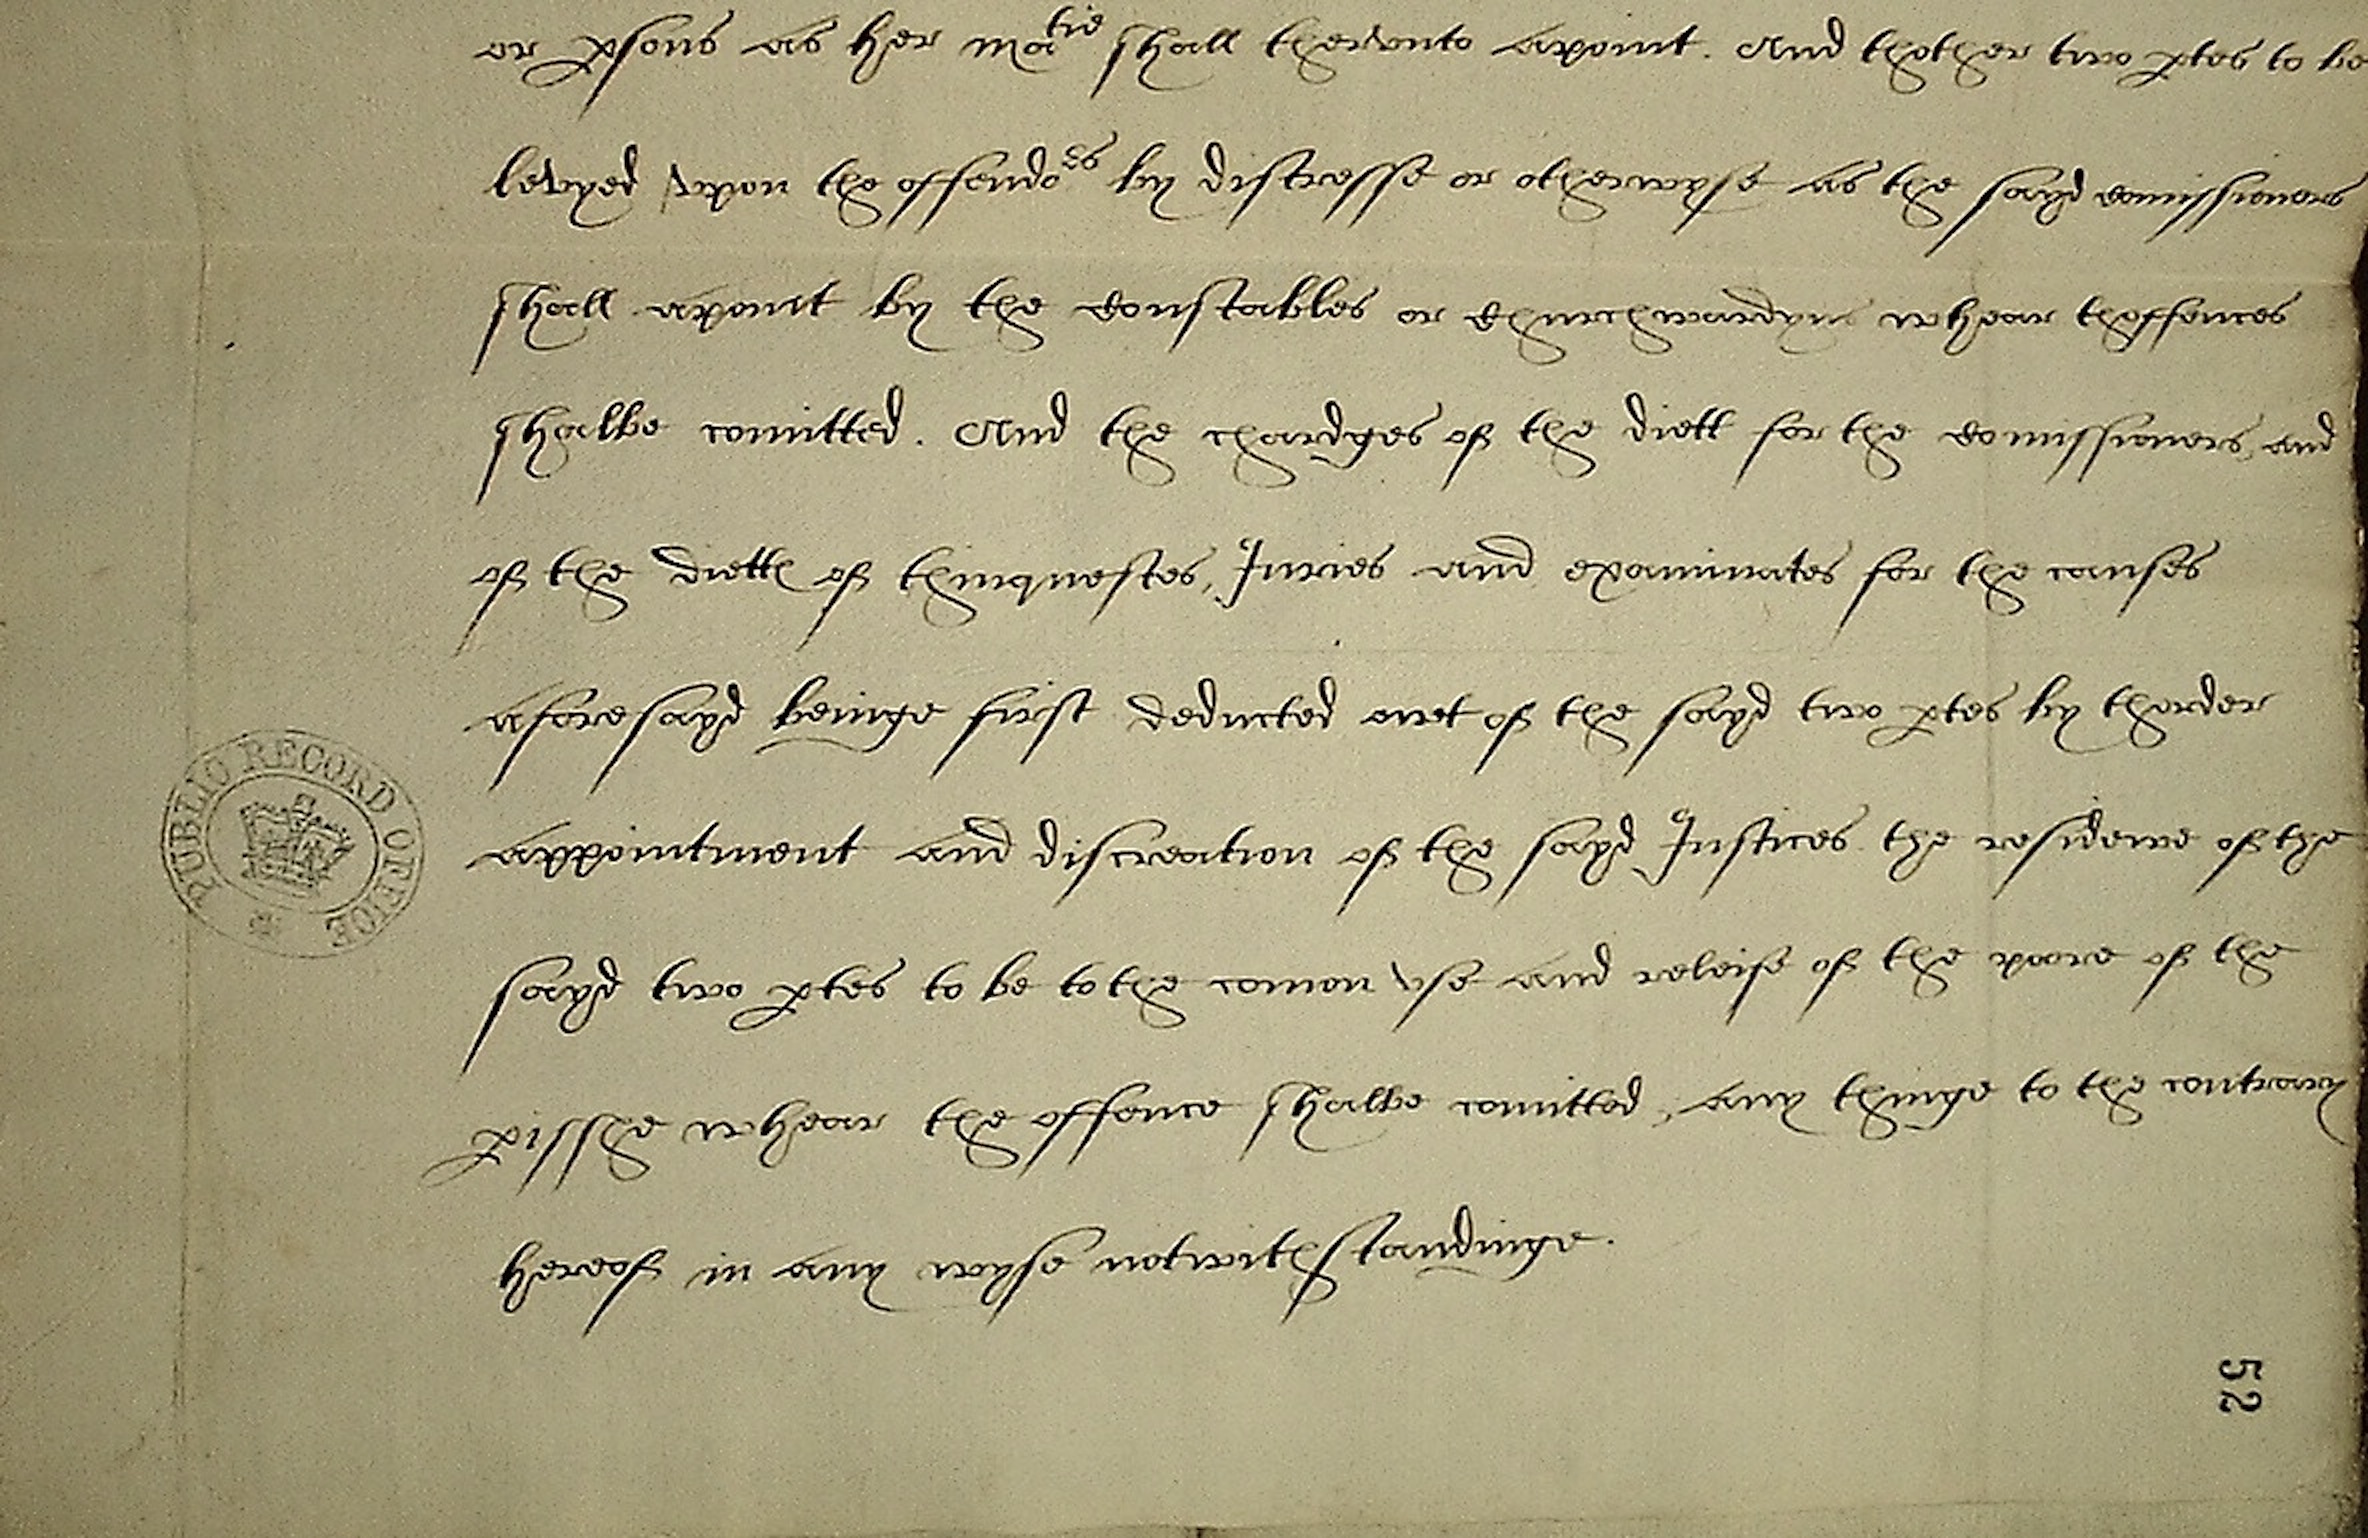 or ꝑsons as her ma^tie shall thervnto apoint. And thother two ꝑtes to be
levyed vpon the offendo^rs by distresse or otherwyse as the sayd comissioners
shall apoint by the constables or churchwardyns whear thoffences
shalbe comitted. And the chardges of the diett for the comissioners and
of the diett of thinquestes, Juries and examinates for the causes
aforesayd beinge first deducted owt of the sayd two ꝑtes by thorder
appointment and discreation of the sayd Justices the residewe of the
sayd two ꝑtes to be to the comon vse and releife of the poore of the
ꝑisshe whear the offence shalbe comitted, any thinge to the contrary
hereof in any wyse notwithstandinge.
PUBLIC RECORD OFFICE
52